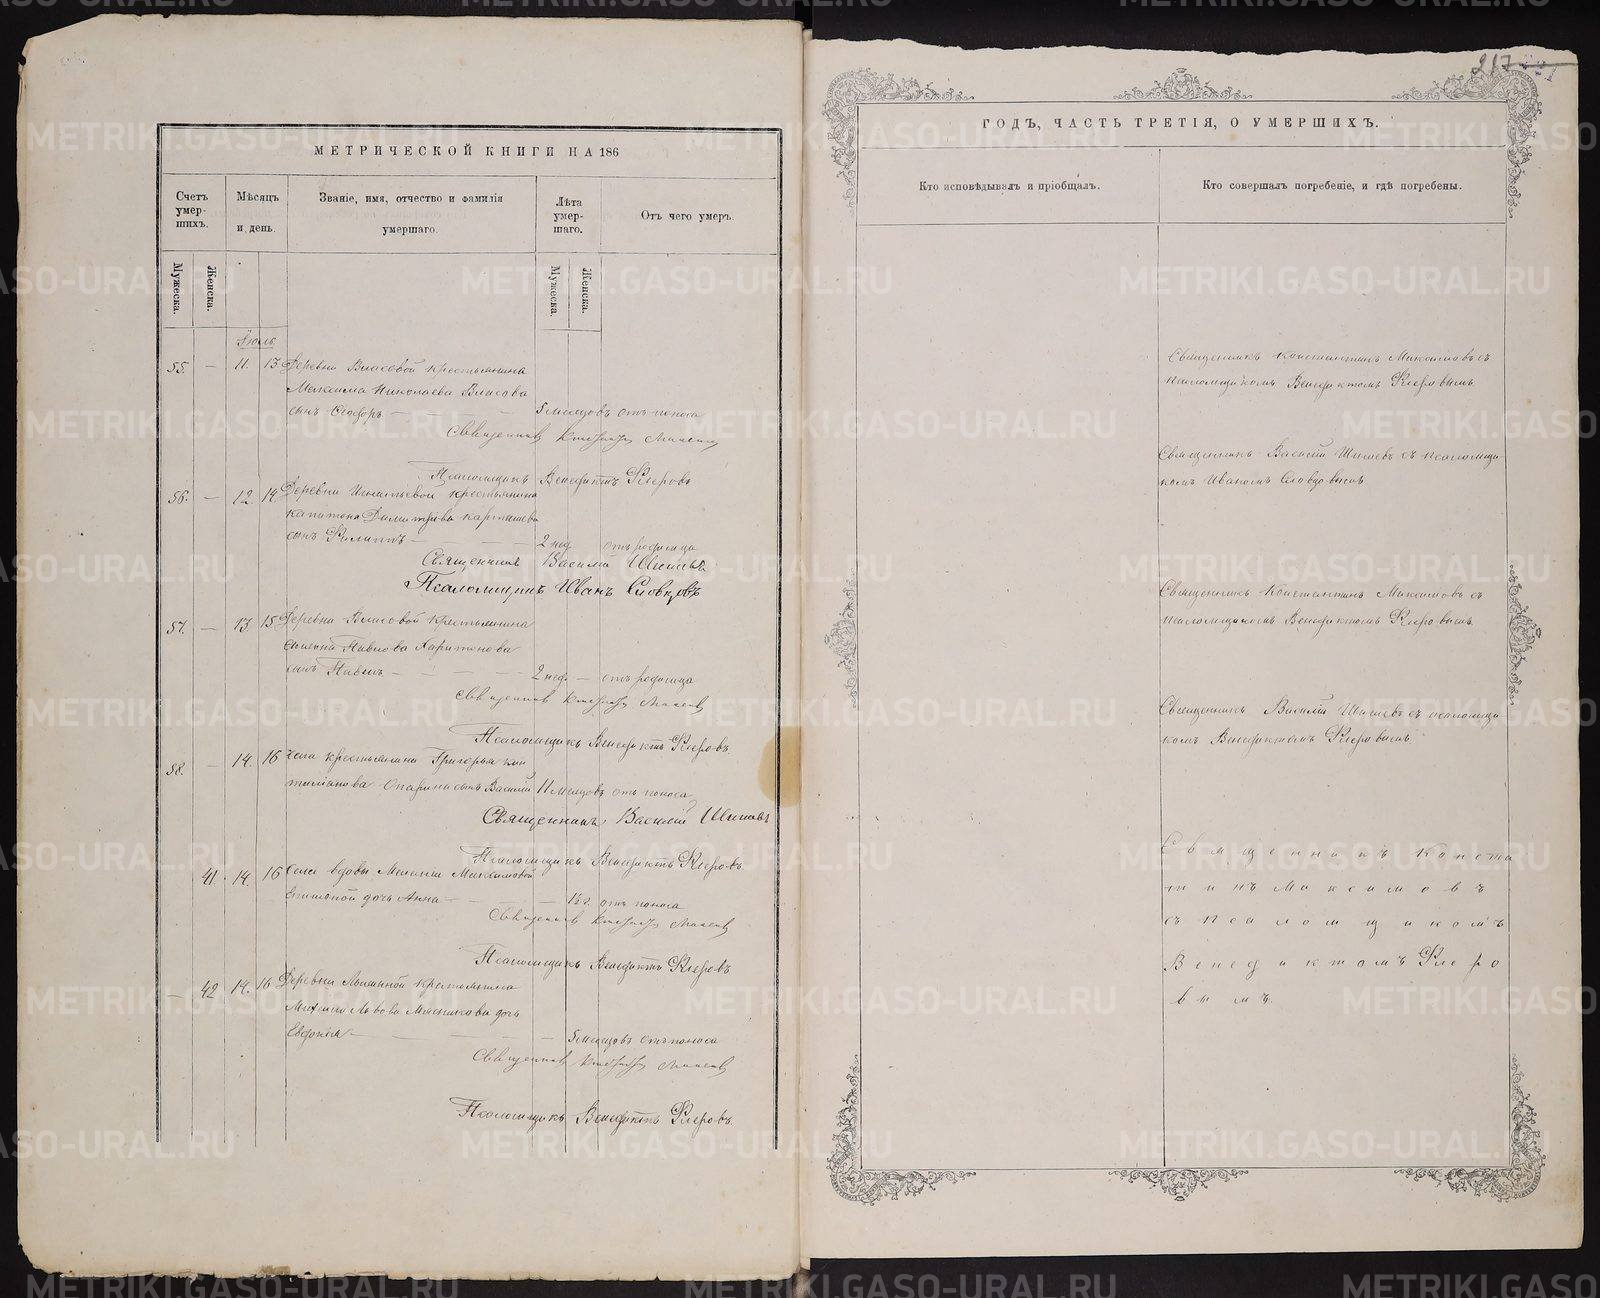 МЕТРИЧЕСКОЙ КНИГИ НА 186
Счетъ умер-шихъ.
Мѣсяцъ и день.
Званіе, имя, отчество и фамилія умершаго.
Лѣта умер-шаго.
Отъ чего умеръ.
Мужеска.
Женска.
Мужеска.
Женска.
Июль
55. — 11. 13. Деревни Власовой крестьянина
Максима Николаева Власова
сынъ Ѳеодоръ — 5 месяцовъ отъ поноса
Священникъ
Псаломщикъ Венедиктъ Флеровъ
56. — 12. 14. Деревни Игнатьевой крестьянина
Капитона Димитрева Карташева
сынъ Филиппъ — 2 нед. отъ родимца
Священникъ Василій Шишевъ
Псаломщикъ Иванъ Словцовъ
57. — 13. 15. Деревни Власовой крестьянина
Павлова Харитонова
сынъ Павелъ — 2 нед. — отъ родимца
Священникъ
Псаломщикъ Венедиктъ Флеровъ.
58. — 14. 16 Села крестьянина Григорья
Опарина сынъ Василій 11 месяцовъ отъ поноса
Священникъ Василій Шишевъ
Псаломщикъ Венедиктъ Флеровъ.
41. 14. 16 Села вдовы Максимовой
дочь Анна — 1½ г. отъ поноса
Священникъ
Псаломщикъ Венедиктъ Флеровъ
— 42 14. 16 Деревни крестьянина
Львова Мясникова дочь
Евдокія — 5 месяцовъ отъ поноса
Священникъ
Псаломщикъ Венедиктъ Флеровъ.
217
ГОДЪ, ЧАСТЬ ТРЕТІЯ, О УМЕРШИХЪ.
Кто исповѣдывалъ и пріобщалъ.
Кто совершалъ погребеніе, и гдѣ погребены.
Священникъ Константинъ Максимовъ съ
псаломщикомъ Венедиктомъ Флеровымъ.
Священникъ Василій Шишевъ съ псаломщи-
комъ Иваномъ Словцовымъ
Священникъ Константинъ Максимовъ съ
псаломщикомъ Венедиктомъ Флеровымъ.
Священникъ Василій Шишевъ съ псаломщи
комъ Венедиктомъ Флеровымъ.
Священникъ Конста
тинъ Максимовъ
съ псаломщикомъ
Венедиктомъ Флеро
вымъ.
METRIKI.GASO-URAL.RU